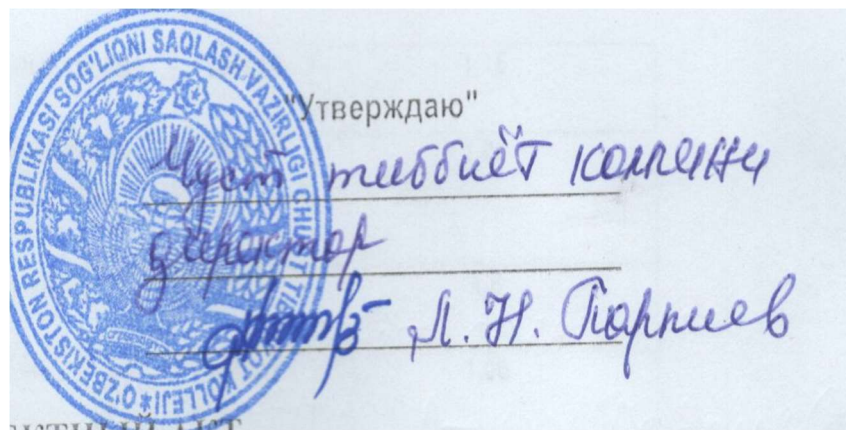 O'ZBEKISTON RESPUBLIKASI SOG'LIQNI SAQLASH VAZIRLIGI CHUST TIBBIYOT KOLLEJI
"Утверждаю"
Чуст тиббиёт коллежи
директор
Л. Н. Парпиев